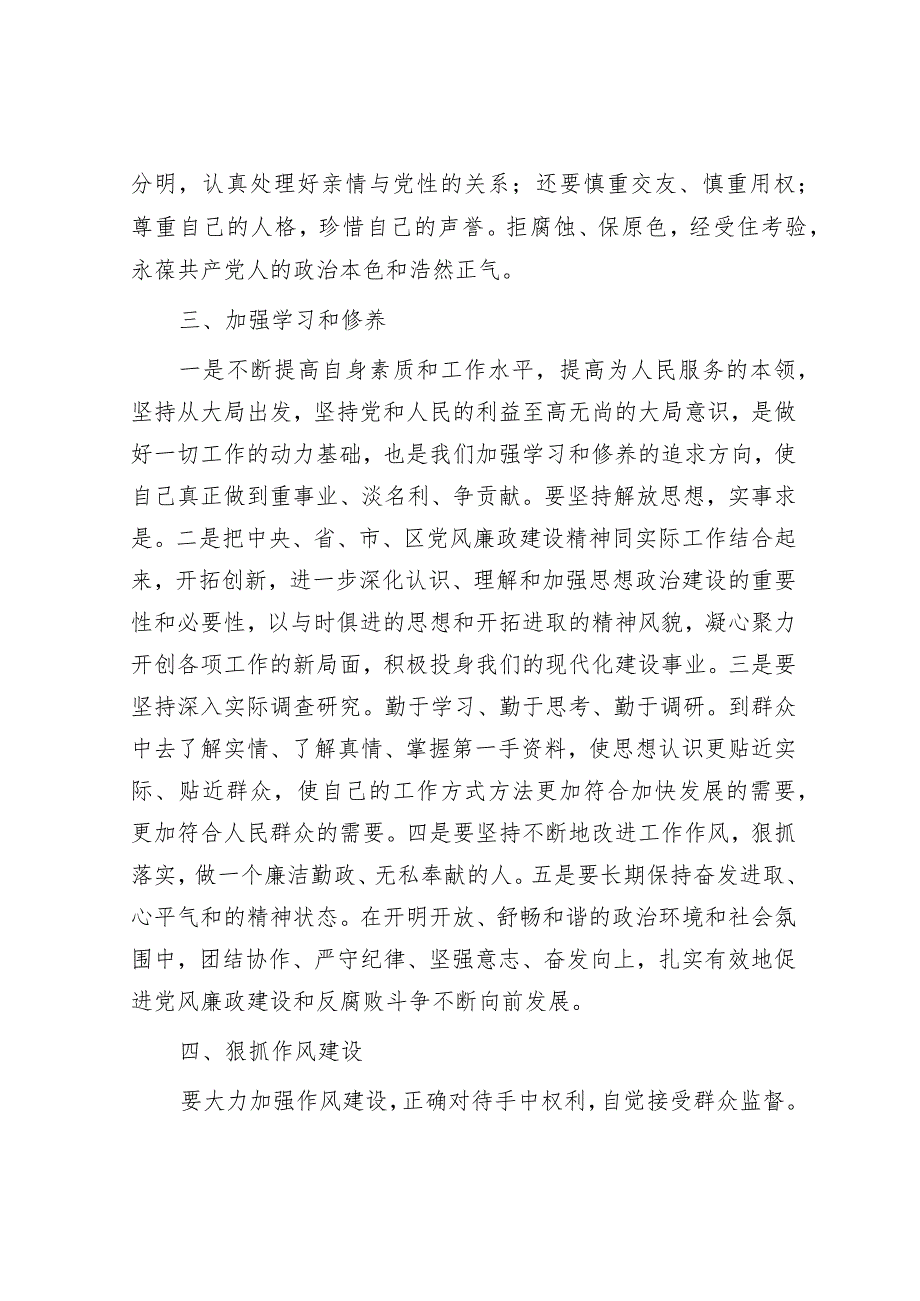 分明，认真处理好亲情与党性的关系；还要慎重交友、慎重用权；
尊重自己的人格，珍惜自己的声誉。拒腐蚀、保原色，经受住考验，
永葆共产党人的政治本色和浩然正气。
三、加强学习和修养
一是不断提高自身素质和工作水平，提高为人民服务的本领，
坚持从大局出发，坚持党和人民的利益至高无尚的大局意识，是做
好一切工作的动力基础，也是我们加强学习和修养的追求方向，使
自己真正做到重事业、淡名利、争贡献。要坚持解放思想，实事求
是。二是把中央、省、市、区党风廉政建设精神同实际工作结合起
来，开拓创新，进一步深化认识、理解和加强思想政治建设的重要
性和必要性，以与时俱进的思想和开拓进取的精神风貌，凝心聚力
开创各项工作的新局面，积极投身我们的现代化建设事业。三是要
坚持深入实际调查研究。勤于学习、勤于思考、勤于调研。到群众
中去了解实情、了解真情、掌握第一手资料，使思想认识更贴近实
际、贴近群众，使自己的工作方式方法更加符合加快发展的需要，
更加符合人民群众的需要。四是要坚持不断地改进工作作风，狠抓
落实，做一个廉洁勤政、无私奉献的人。五是要长期保持奋发进取、
心平气和的精神状态。在开明开放、舒畅和谐的政治环境和社会氛
围中，团结协作、严守纪律、坚强意志、奋发向上，扎实有效地促
进党风廉政建设和反腐败斗争不断向前发展。
四、狠抓作风建设
要大力加强作风建设，正确对待手中权利，自觉接受群众监督。